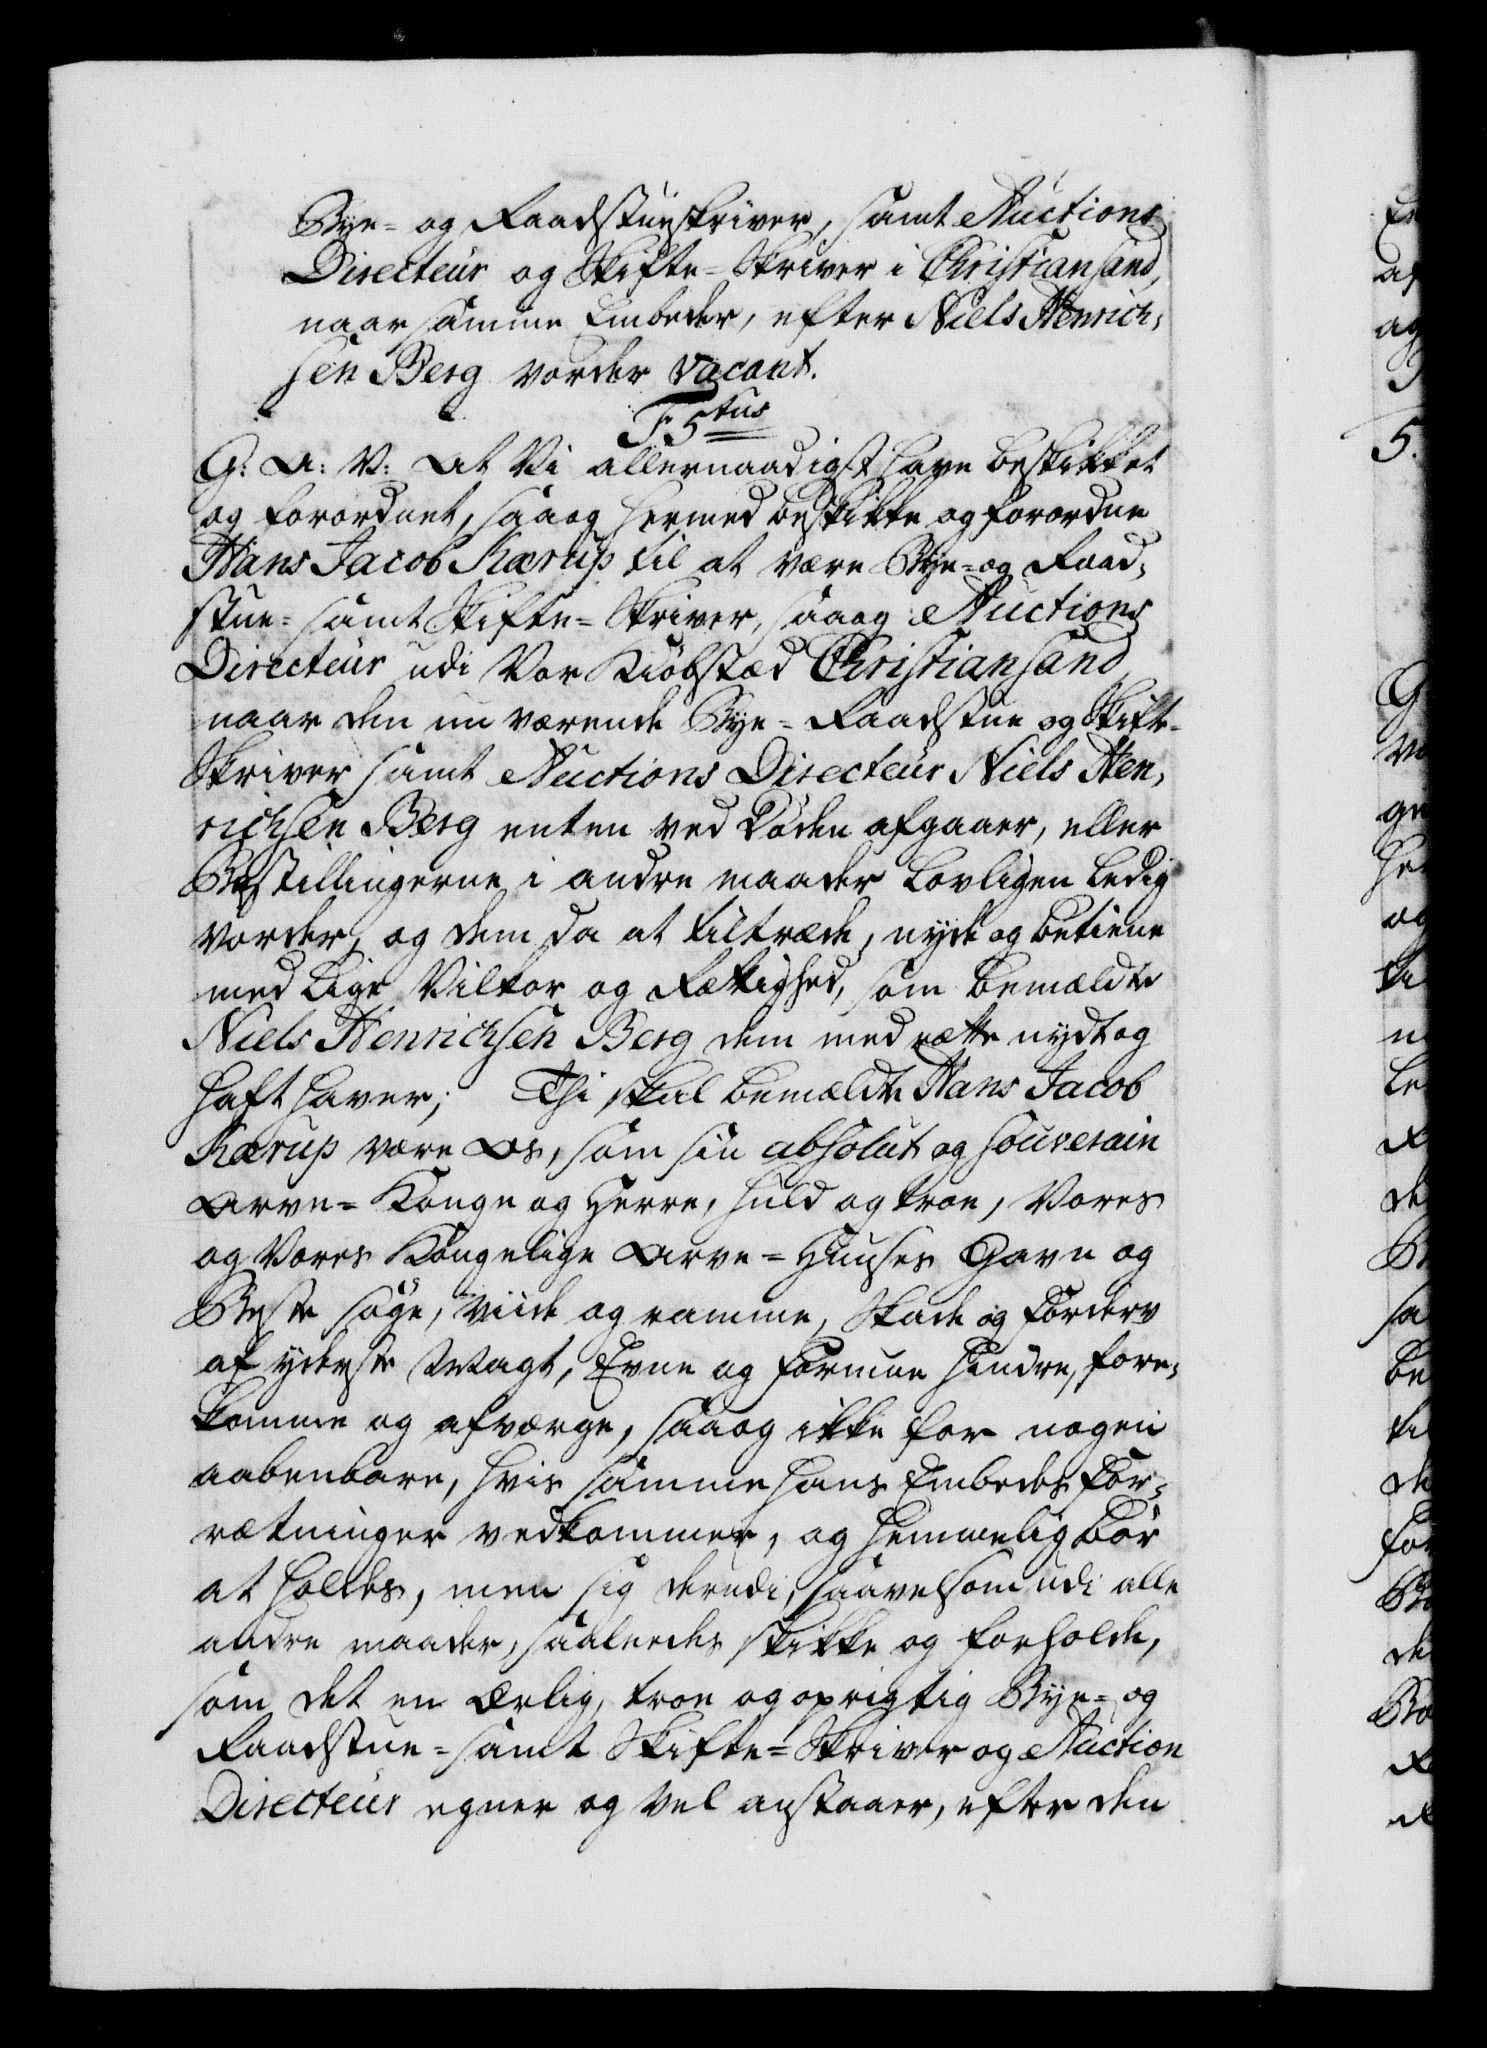 Bye= og Raadstueskriver, samt Auctions
Directeur og Skifte=Skriver i Christiansand,
naar samme Embeder, efter Niels Henrich,
sen Berg vorder vacant.
F: 5tus
G: A: V: at Vi allernaadigst have beskikket
og forordnet, saa og hermed beskikke og forordne
Hans Jacob Kærup til at være Bye= og Raad,
stue= samt Skifte=Skriver, saa og Auctions
Directeur udi Vor Kiöbstæd Christiansand
naar den nu værende Bye= Raadstue og Skifte=
Skriver samt Auctions Directeur Niels Hen,
richsen Berg enten ved Döden afgaaer, eller
Bestillingerne i andre maader lovligen ledig
vorder, og dem da at tiltræde, nyde og betiene
med lige Vilkor og Rettighed, som bemældte
Niels Henrichsen Berg dem med rætte nydt og
haft haver; Thi skal bemældte Hans Jacob
Kærup være Os, som sin absolut og souverain
Arve=Konge og Herre, huld og troe, Vores
og Vores Kongelige Arve=Huuses Gavn og
Beste söge, viide og ramme, Skade og Forderv
af yderste Magt, Evne og Formue hindre, fore,
komme og afværge, saa og ikke for nogen
aabenbare, hvis samme hans Embedes For,
rætninger vedkommer, og hemmelig bör
at holdes, men sig derudi, saavelsom udi alle
andre maader, saaledes skikke og forholde,
som det en ærlig, troe og oprigtig Bye= og
Raadstue= samt Skifte=Skriver og Auction
Directeur egner og vel anstaaer, efter den